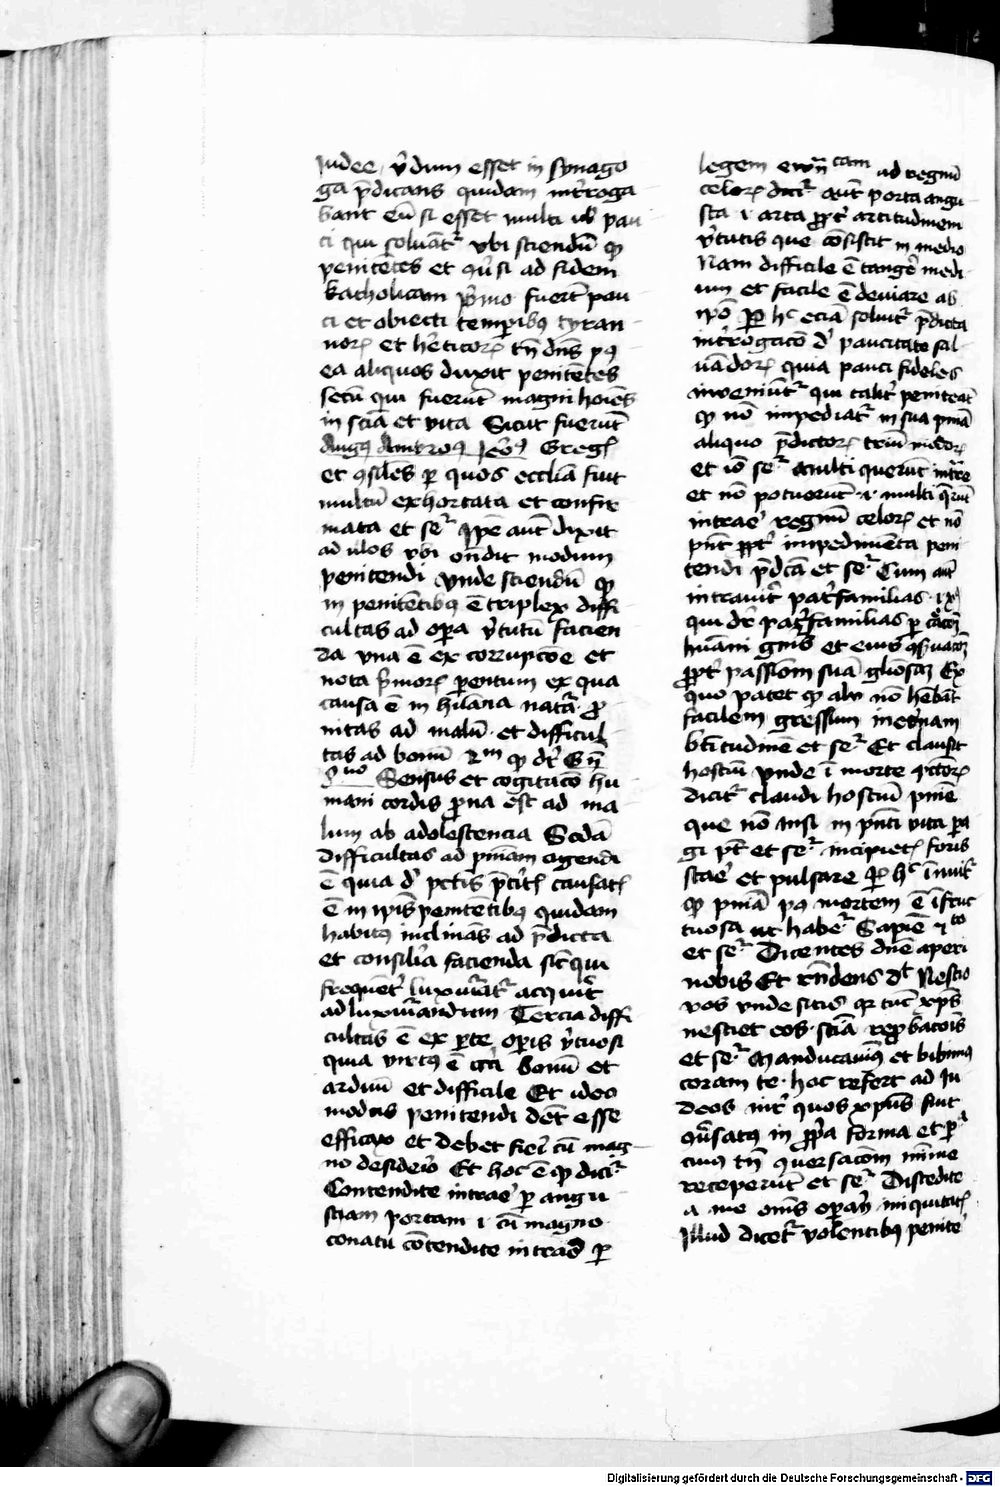 Iudee v̾dum esset in synago
ga p̄dicans quidam int̾roga
bant eū si esset multi ul̾ pau
ci qui soluāt᷑ vbi sciendū qꝫ
penitētes et qn̄ si ad fidem
katholicam p̾mo fuert̄ pau
ci et obiecti temꝑibꝫ tyran
noꝝ et h̾eticoꝝ tn̄ dn̄s pꝰ
ea aliquos duxit penitētes
secū qui fuerūt magni hoīes
in sciā et vita Sicut fuerūt
Augꝰ Ambroꝰ Ieroꝰ Greg
et ꝯsiles ꝑ quos eccliā fuit
multū exhortata et confir
mata et se᷑ Ip̄e aut̄ dixit
ad illos vbi ondit modum
penitendi vnde sciendū qꝫ
in penitētibꝫ ē triplex diffi
cultas ad oꝑa v̾tutū facien
da vna ē ex corrupcōe et
nota p̾moꝝ ꝑentum ex qua
causa ē in hūana nat᷑a ꝓ
nitas ad malū et difficul
tas ad bonū 2m qꝫ dr̄ Gn̄
Sensus et cogitacō hu
mani cordis ꝓna est ad ma
lum ab adolescencia Scdā
difficultas ad pn̄iam agendi
ē quia d̾ pctīs p̄tītꝭ causatꝭ
ē in ip̄is penitētibꝫ quidam
habitꝰ inclinās ad p̄dicta
et consilia facienda sic̄ qui
frequēt̾ luxuriat᷑ acquir̾t
ad luxuriandum Tercia diffi
cultas ē ex ꝑte oꝑis v̾tuosi
quia virtꝰ ē cc̄a bonū et
arduū et difficile Et ideo
modus penitendi det̄ esse
efficax et debet fieri cū mag
no desiderio Et hoc ē qꝫ dicit᷑
Contendite intrare ꝑ angu
stam portam i cū magno
conatu cōtendite intrare ꝑ
legem ewn̄cam ad regnū
celoꝝ dicit᷑ aūt porta angu
sta i arta ꝓpt̾ artitudinem
v̾tutis que cōsistit in medio
Nam difficile ē tange᷑ medi
um et facile ē deuiare ab
ip̄o Per hc eciā soluit᷑ p̄dicta
int̾rogacō d̾ paucitate sal
uādoꝝ quia pauci fideles
inueniūt᷑ qui talit̾ peniteāt
qꝫ nō impediat᷑ in sua pn̄ia
aliquo p̄dictoꝝ triū modoꝝ
et iō se᷑ multi querūt int᷑re
et nō potuerūt i multi q̄rūt
intrare regnū celoꝝ et nō
pn̄t ꝓpt̾ impedimēta peni
tendi p̄dcā et se᷑ Cum aūt
intrauit̾ pat̾familias i xp̄
qui dr̄ pat̾familias ꝑ
hūani gn̄is et eius
ꝓpt̾ passiom suā gliosaꝫ Ex
quo patet qꝫ alii nō hēbāt
facilem gressum in et̾nam
btītudinē et se᷑ Et clauserit
hostiū vnde ī morte pctōꝝ
dicit᷑ claudi hostiū pn̄ie
que nō nisi in pn̄ti vita ꝑa
gi pt̄ et se᷑ incipietꝭ foris
stare et pulsare Per hc īnuit᷑
qꝫ pn̄iā pꝰ mortem ē īfruc
tuosa ut habe᷑ Sapiē
et se᷑ Dicentes dn̄e aperi
nobis Et rn̄dens dt Nescio
vos vnde sitis qꝛ tūc xp̄s
nesciet eos sciā reꝓbacōis
et se᷑ Manducauimꝰ et bibimꝰ
coram te hoc refert ad Iu
deos int̾ quos xpūs fuit
ꝯu̾satꝰ in ꝓp̾a forma et ꝑ
cuiꝰ tn̄ ꝯuersacōm mīme
receperūt et se᷑ Discedite
a me om̄s oꝑan̄ iniquitatꝭ
Illud dicet᷑ volentibꝰ penite̾